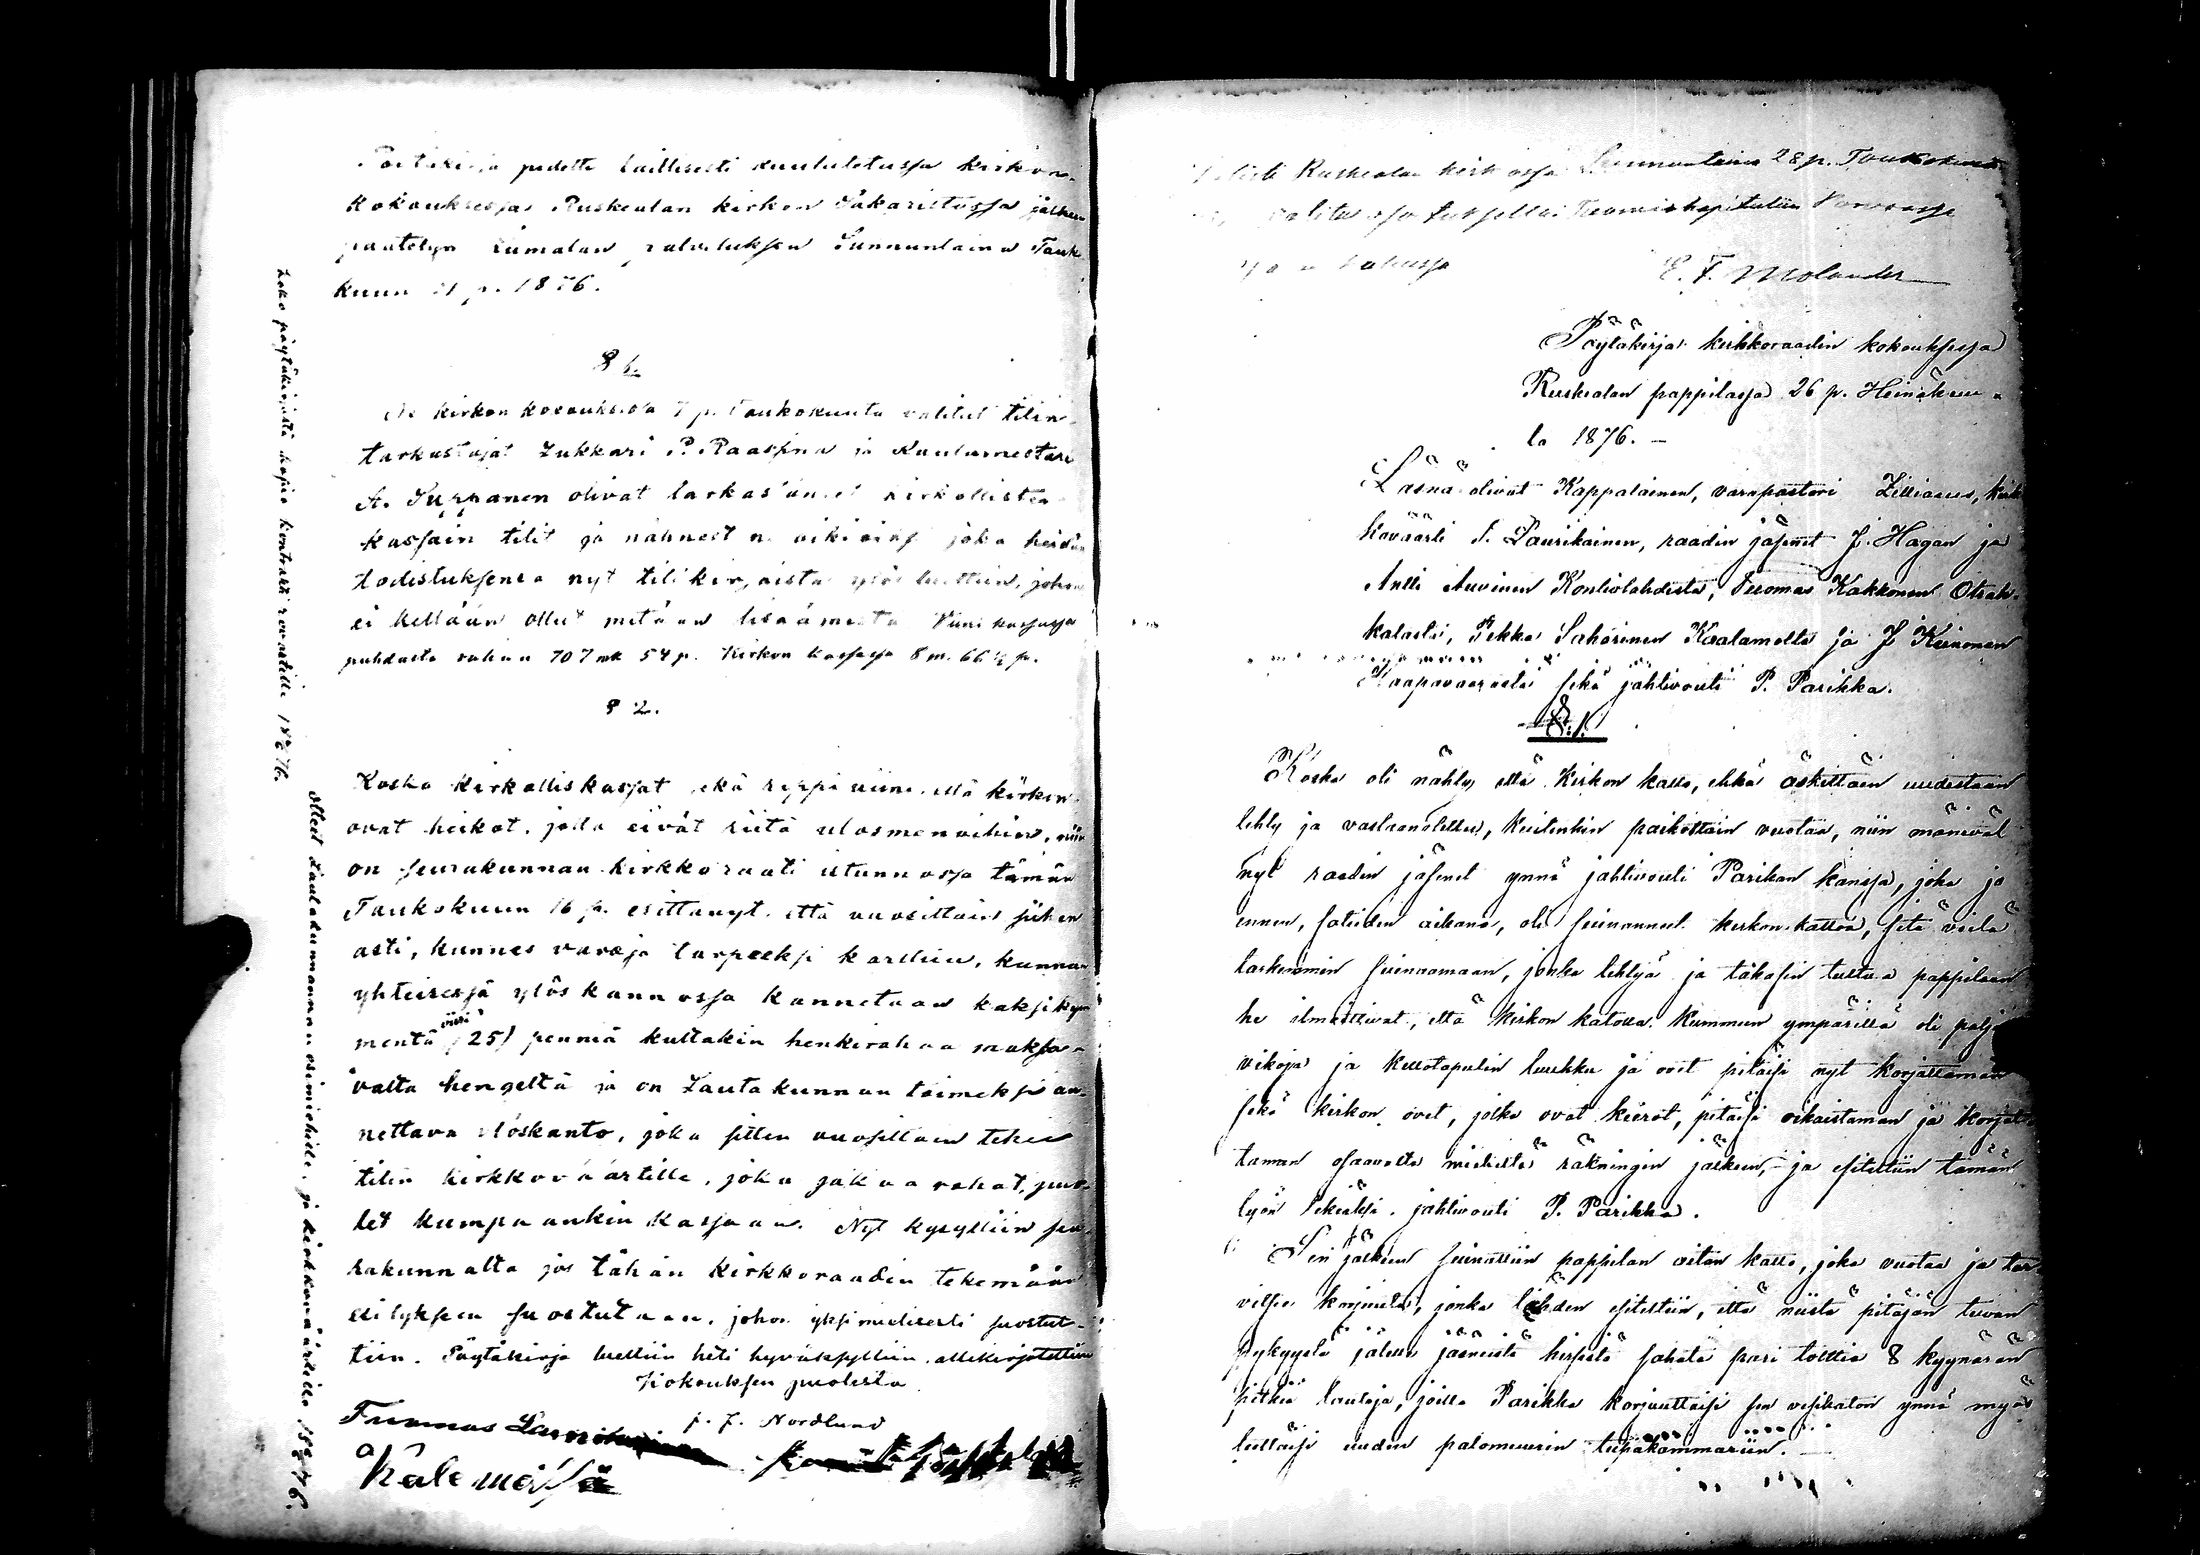 pidetty laillisesti kuulutetussa kirkon-
kokouksessa Ruskealan kirkon Sakaristossa jälkeen
päätetyn Jumalan palveluksen Sunnuntaina Touko
kuun 21 p. 1876.
§ 1.
kirkon kokouksessa 7 p. Toukokuuta valitut tilin-
tarkastajat Lukkari P. Raasina ja Koulumestari
A. Puppanen olivat tarkastaneet kirkollisten
kassain tilit ja nähneet ne oikeiksi joka heidän
todistuksensa nyt tilikirjoista ylös luettiin, johon
ei kellään ollut mitään lisäämistä Viini kassassa
puhdasta rahaa 707 mk 54 p. Kirkon kassassa 8 m. 66 ½ p.
§ 2.
Koska kirkolliskassat sekä reppi viini että kirkon
ovat heikot, jotta eivät riitä ulosmenoihin, niin
on seurakunnan kirkkoraati istunnossa tämän
Toukokuun 16 p. esittänyt että vuosittain siihen
asti, kunnes varoja tarpeeksi karttuu, kunnan
yhteisessä ylöskannossa kannetaan kaksikym
mentä viisi (25) penniä kultakin henkirahaa maksa-
valta hengeltä ja on Lautakunnan toimeksi an-
nettava ylöskanto, joka sitten vuosittain tekee
tilin kirkkoväärtille, joka jakaa rahat, puo-
let kumpaankin kassaan. Nyt kysyttiin seu-
rakunnalta jos tähän kirkkoraadin tekemään
esitykseen suostutaan, johon yksimielisesti suostut-
tiin. Pöytäkirja luettiin heti hyväksyttiin, allekirjotettiin
Kokouksen puolesta
J. F. Nordlund
Tuomas
Kalemoissa
Koko pöytäkirjasta kopia kontrahti rovastille 18 76.
Otteet Lautakunnannan esimiehelle ja kirkkoväärtille 18 76.
Ruskealan kirkossa Sunnuntaina 28 p. Toukokuuta
Tuomiokapitulin Porvoossa
E. F. Molander
Pöytäkirja kirkkoraadin kokouksessa
Ruskealan pappilassa 26 p. Heinäkuu-
ta 1876. —
Läsnä olivat Kappalainen, varapastori Zilliacus, kirk
koväärti T. Laurikainen, raadin jäsenet J. Hagan ja
Antti Auvinen Kontiolahdista, Tuomas Kakkonen Otrak-
kalasta, Pekka Saharinen Kaalamolta ja J. Kinnonen
Haapavaarasta sekä jahtivouti P. Parikka.
§. 1.
Koska oli nähty että Kirkon katto, ehkä äskettäin uudestaan
tehty ja vastaanotettu, kuitenkin paikottain vuotaa, niin menivät
nyt raadin jäsenet ynnä jahtivouti Parikan kanssa, joka jo
ennen, sateiden aikana, oli seurannut kirkon kattoa, sitä vielä
tarkemmin seuraamaan, jonka tehtyä ja takasin tultua pappilaan
he ilmoittivat, että kirkon katolla Kummun ympärillä oli paljo
vikoja ja kellotapulin luukku ja ovet pitäisi nyt korjattaman
sekä kirkon ovet, jotka ovat kierot, pitäisi oikaistaman ja korjat-
taman osaavalla miehellä räkningin jälkeen, ja esitettiin tämän
työn tekiäksi jahtivouti P. Parikka.
Sen jälkeen seurattiin pappilan aitan katto, joka vuotaa ja tar
vitsee korjuuta, jonka tähden esitettiin, että niistä pitäjän tuvan
pykyystä jälelle jääneistä hirsistä sahata pari tolttia 8 kyynärän
pitkiä lautoja, joilla Parikka korjauttaisi sen vesikaton ynnä myös
teettäisi uuden palomuurin tupakammariin. —